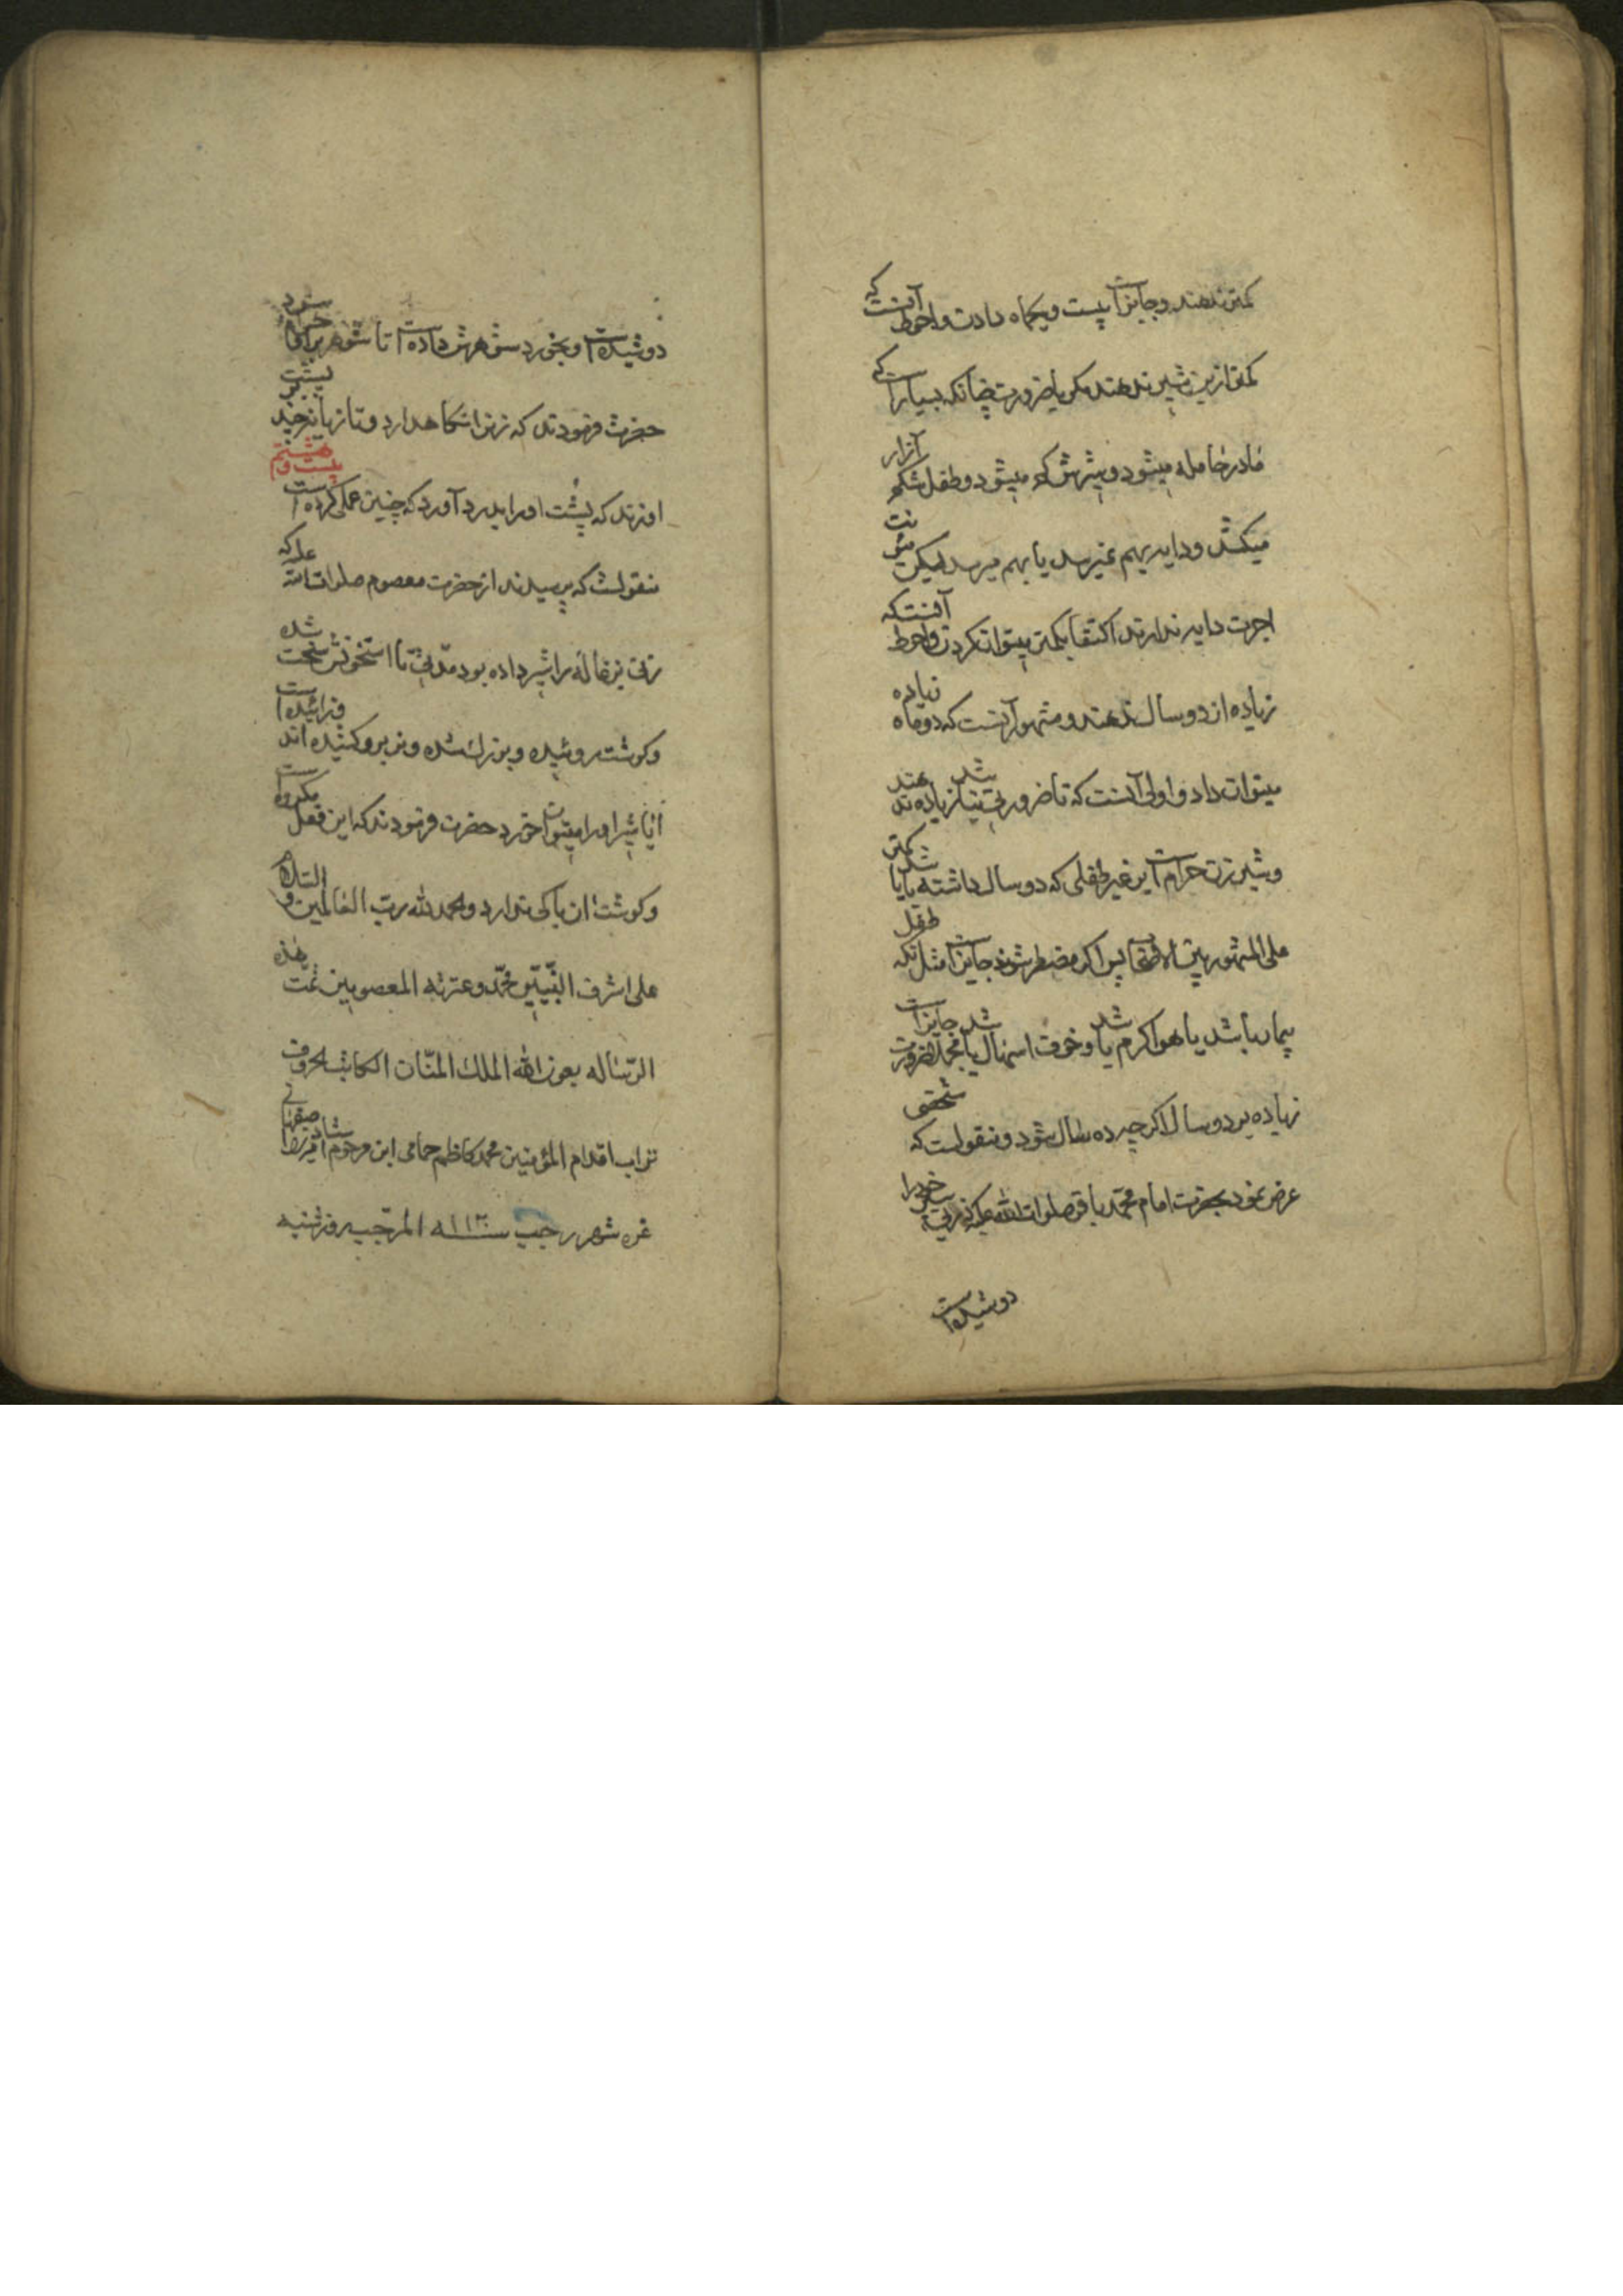 کمتر ندهند و جایز است بیست و یکماه دادن و احوط آنست که
کمتر ازین شیر ندهند مکر با ضرورت چنانکه بسیار است که
مادر حامله میشود و شیرش کم میشود و طفل شکم آزار
میکشد و دایه بهم نمیرسد یا بهم میرسد لیکن
اجرت دایه ندارند اکتفا بکمتر میتوان کردن و احوط آنستکه
زیاده از دو سال ندهند و مشهور آنست که دو ماه زیاده
میتوان داد و اولی آنست که تا ضرورتی نباشد زیاده ندهند
و شیر زن حرام است بر غیر طفلی که دو سال داشته باشد یا کمتر
علی المشهور بین الاصحاب پس اکر مضطر شوند جایز است مثل آنکه طفل
بیمار باشد یا هوا کرم باشد و خوف اسهال باشد مجملا ضرورت جایز است
زیاده بر دو سال اکر چه ده سال شود و منقولست که شخصی
عرض نمود بحضرت امام محمد باقر صلوات الله علیه که زنی شیر خود را
دوشیده است
دوشیده است و بخورد شوهرش داده است تا شوهر بر او حرام شود
حضرت فرمودند که زنرا نکاهدارد و تازیانه چند بر پشت
او زند که پشت او را بدرد آورد که چنین عملی کرده است بیست و هشتم
منقولست که پرسیدند از حضرت معصوم صلوات الله علیه که
زنی بزغاله را شیر داده بود مدتی تا استخوانش سخت شده
و کوشت روئیده و بزرک شده و نر برو کشیده اند و زائیده است
آیا شیر او را میتوان خورد حضرت فرمودند که این فعل مکروه است
و کوشت ان باکی ندارد و الحمد لله رب العالمین و السلام
علی اشرف النبیین محمد و عترته المعصومین تمت هذه
الرساله بعون الله الملک المنان الکاتب الحروف
تراب اقدام المؤمنین محمد کاظم حمامی ابن مرحوم
غره شهر رجب المرجب روز شنبه سنه ۱۱۲۰